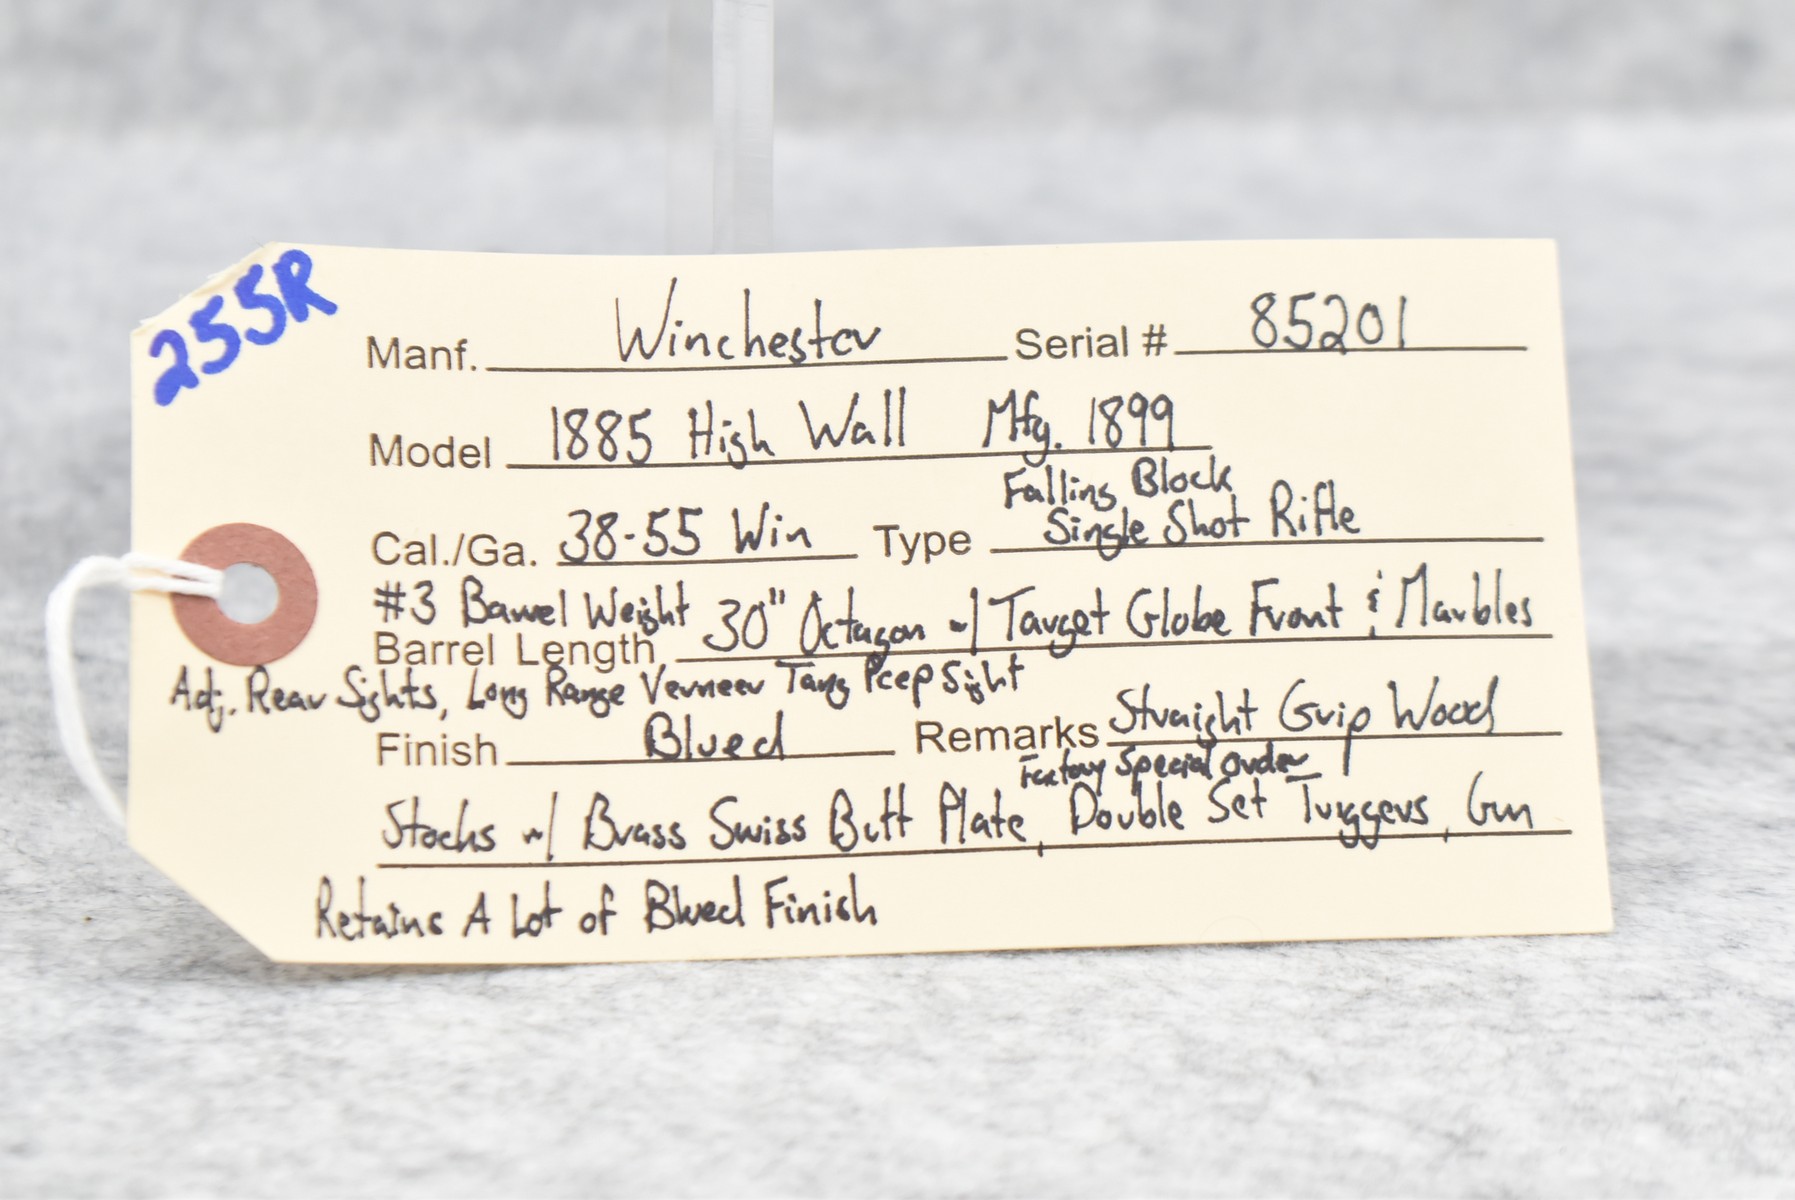 255R
Manf. Winchester Serial # 85201
Model 1885 High Wall Mfg. 1899
Falling Block
Cal./Ga. 38-55 Win Type Single Shot Rifle
#3 Barrel Weight
Barrel Length 30" Octagon w/ Target Globe Front & Marbles
Adj. Rear Sights, Long Range Verneer Tang Peep Sight
Finish Blued Remarks Straight Grip Wood
Factory Special Order
Stocks w/ Brass Swiss Butt Plate, Double Set Triggers, Gun
Retains A Lot of Blued Finish